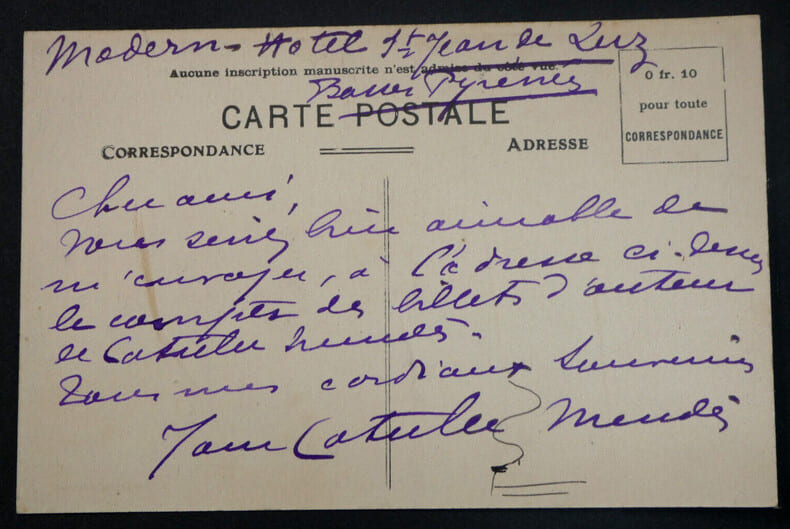 Modern-Hotel St Jean de Luz
Aucune inscription manuscrite n'est admise du côté vue.
Basses Pyrénées
CARTE POSTALE
CORRESPONDANCE
ADRESSE
0 fr. 10
pour toute
CORRESPONDANCE
Cher ami,
Vous seriez bien aimable de
m'envoyer, à l'adresse ci-dessus
le compte des billets d'auteur
de Catulle Mendès.
Tous mes cordiaux souvenirs
Jane Catulle Mendès